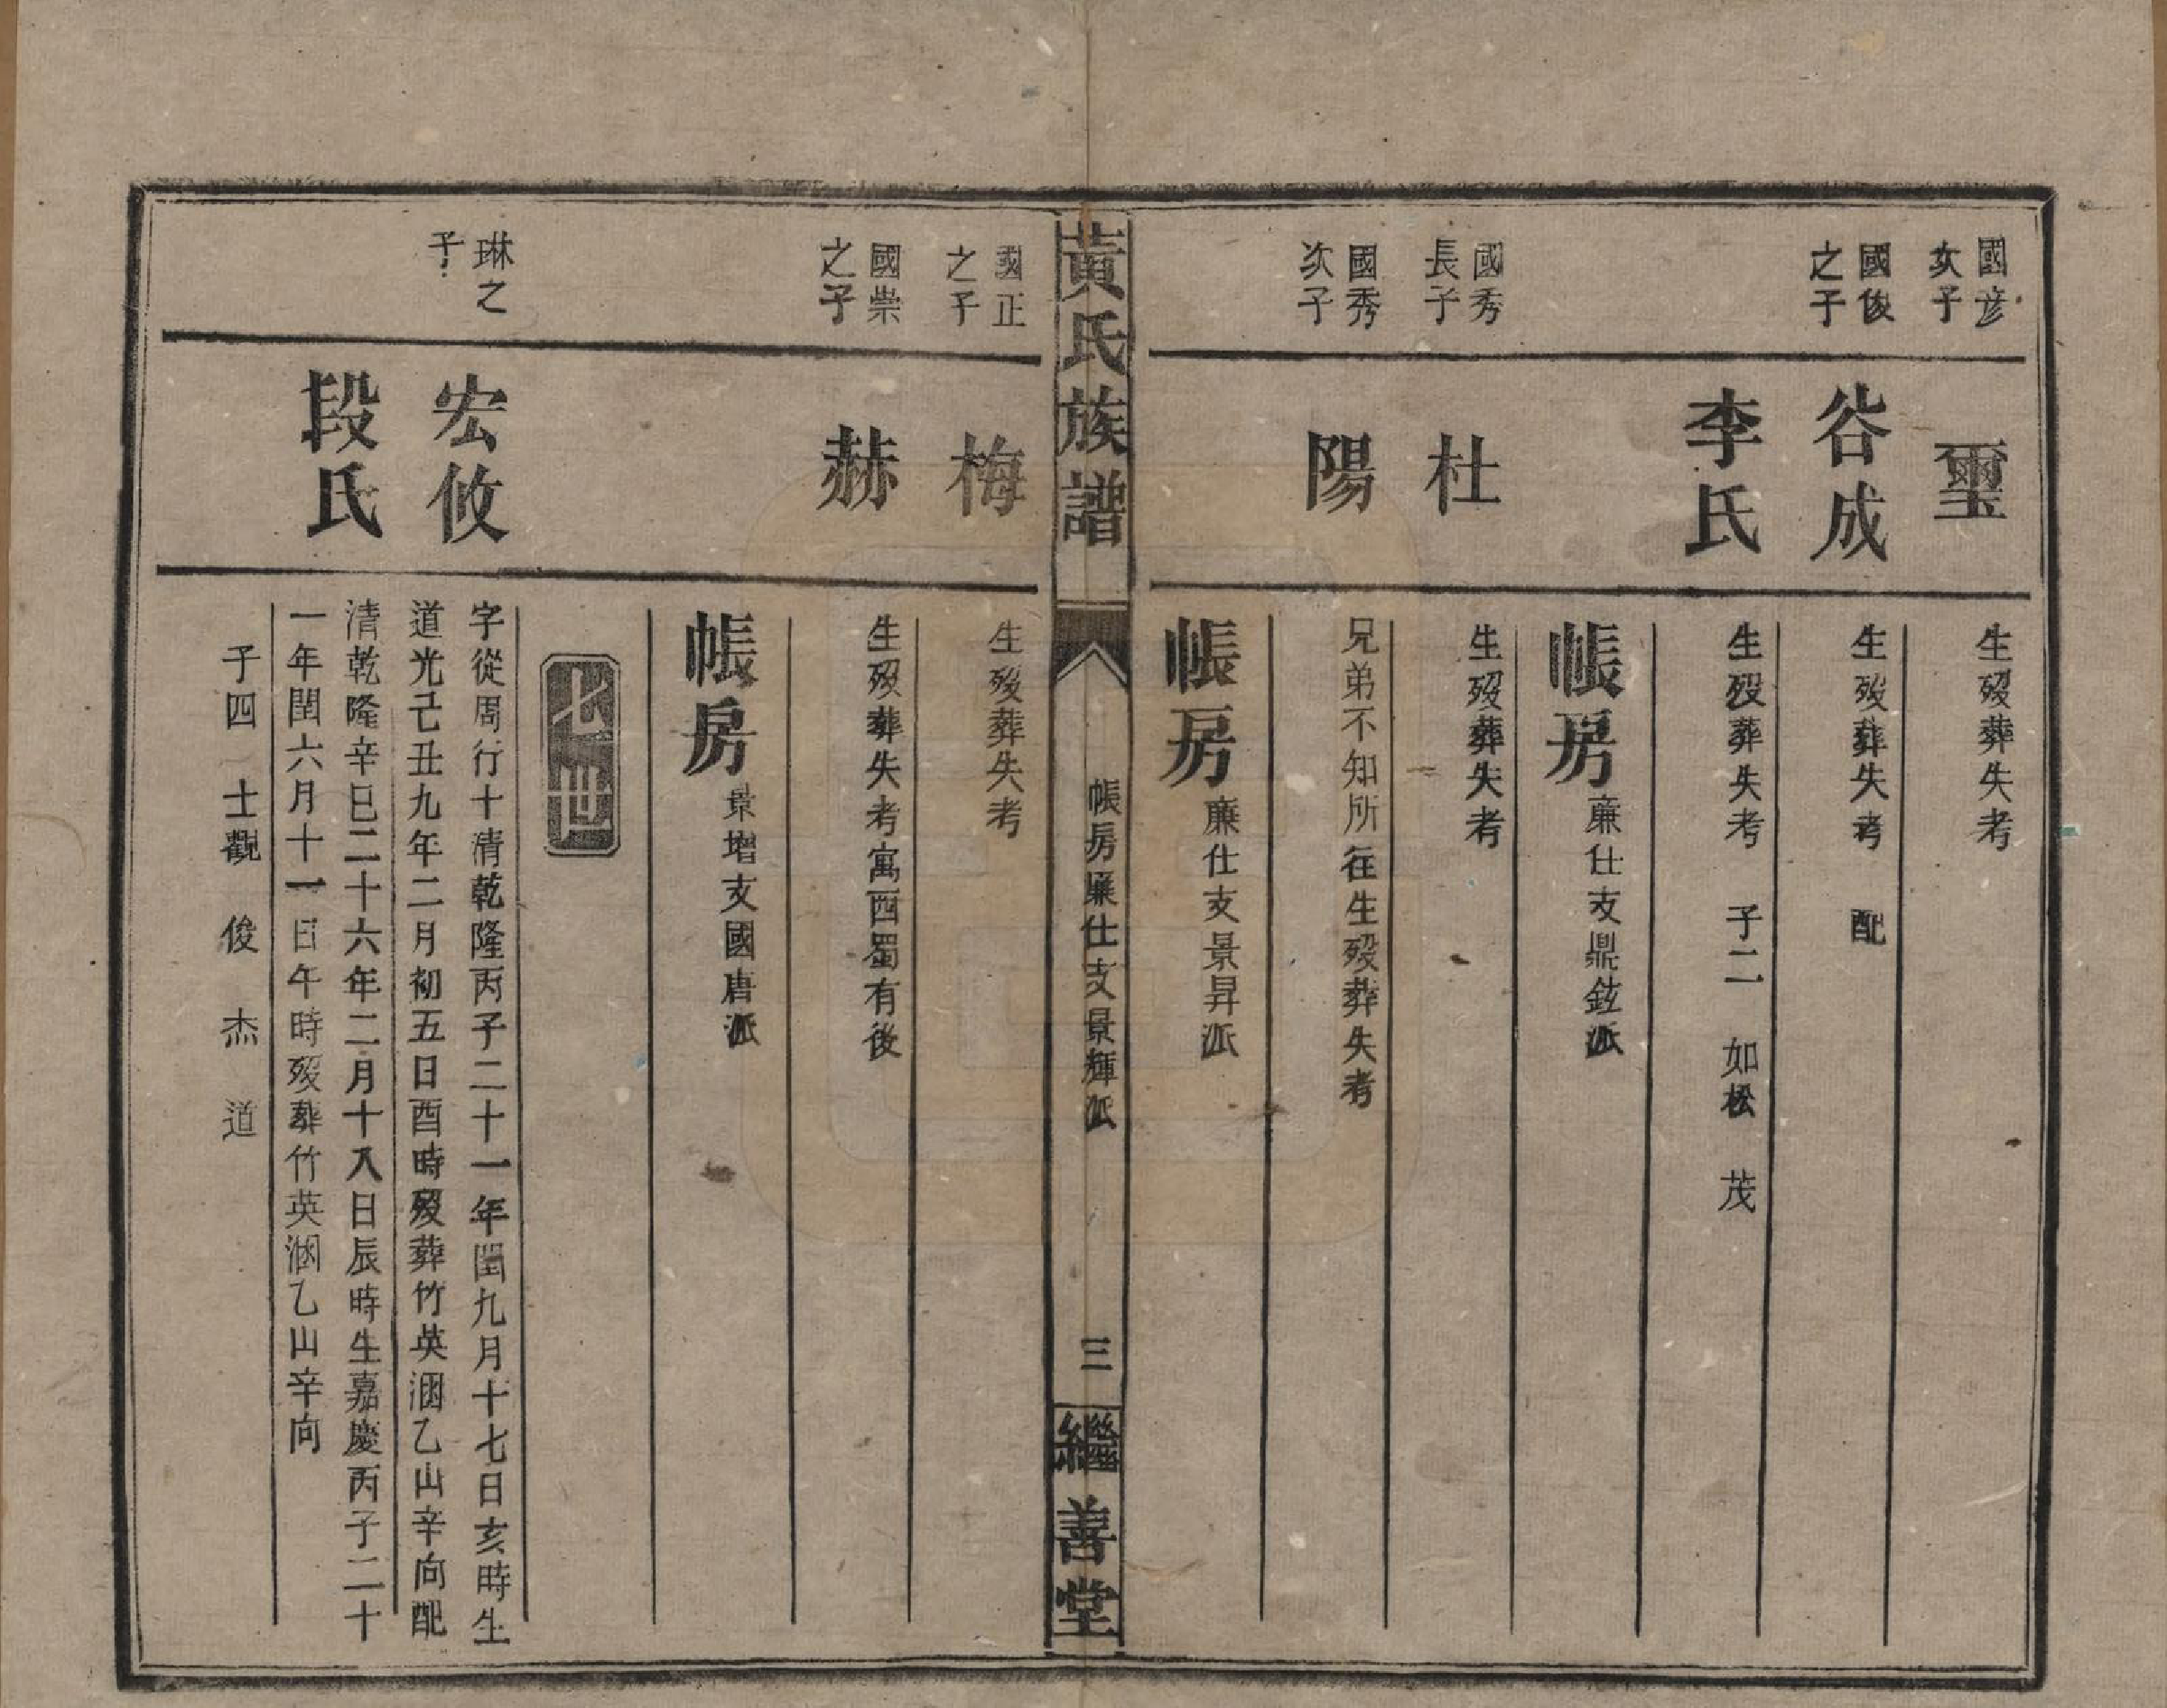 國彦
次子
璽
生歿葬失考
國俊
之子
谷成
生歿葬失考 配
李氏
生歿葬失考 子二 如松 茂
帳房
廉仕支鼎鉉派
國秀
長子
杜
生歿葬失考
國秀
次子
陽
兄弟不知所在生歿葬失考
帳房
廉仕支景昇派
黃氏族譜
帳房廉仕支景輝派
三
繼善堂
國正
之子
梅
生歿葬失考
國崇
之子
赫
生歿葬失考寓西蜀有後
帳房
景增支國唐派
七世
琳之
子
宏攸
字從周行十清乾隆丙子二十一年閏九月十七日亥時生
道光己丑九年二月初五日酉時歿葬竹英涃乙山辛向配
段氏
清乾隆辛巳二十六年二月十八日辰時生嘉慶丙子二十
一年閏六月十一日午時歿葬竹英涃乙山辛向
子四 士觀 俊 杰 道